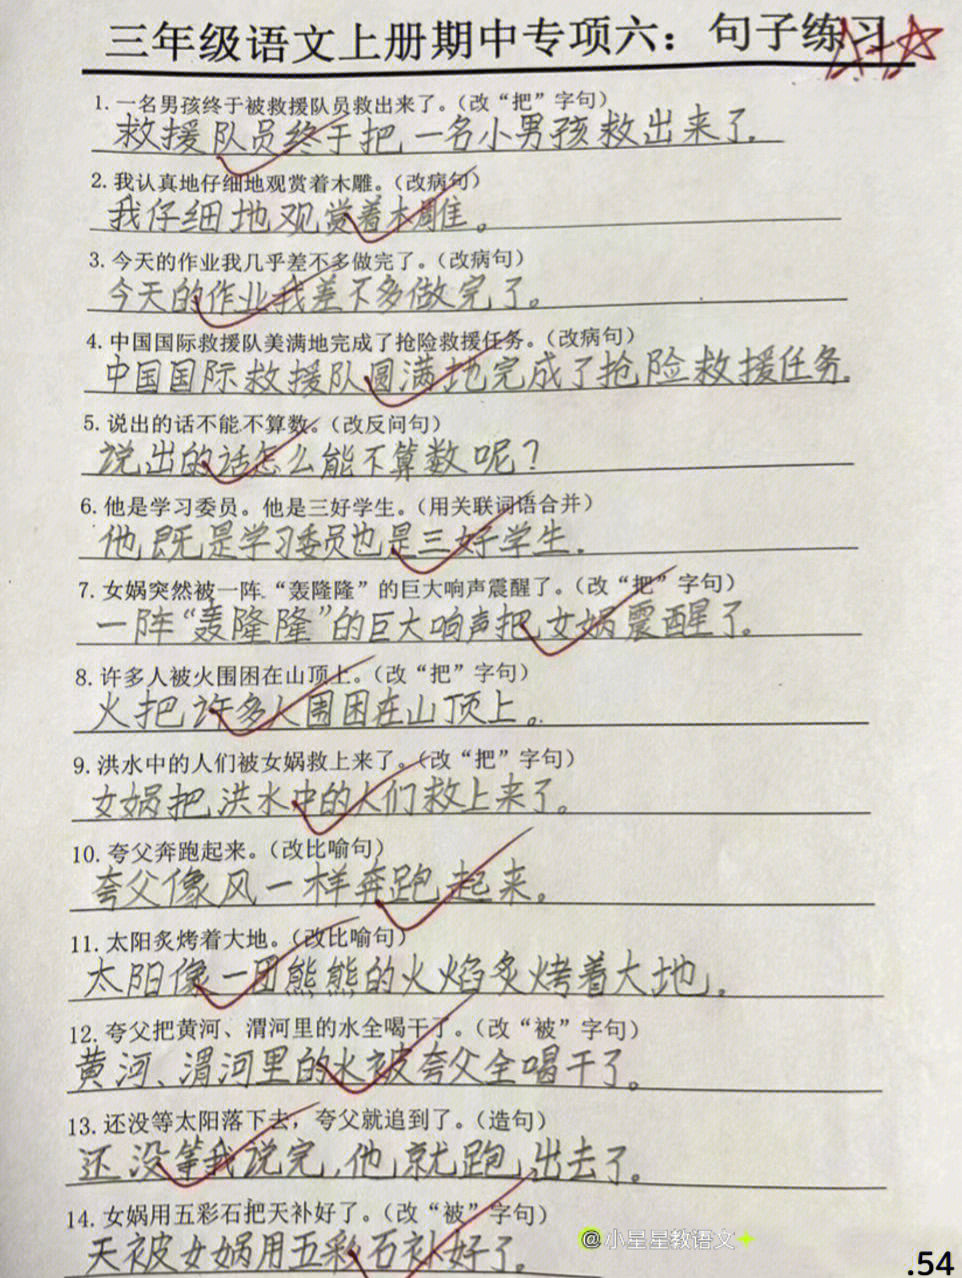 三年级语文上册期中专项六：句子练习
A++☆
1. 一名男孩终于被救援队员救出来了。（改“把”字句）
救援队员终于把一名小男孩救出来了.
2. 我认真地仔细地观赏着木雕。（改病句）
我仔细地观赏着木雕。
3. 今天的作业我几乎差不多做完了。（改病句）
今天的作业我差不多做完了。
4. 中国国际救援队美满地完成了抢险救援任务。（改病句）
中国国际救援队圆满地完成了抢险救援任务.
5. 说出的话不能不算数。（改反问句）
说出的话怎么能不算数呢？
6. 他是学习委员。他是三好学生。（用关联词语合并）
他既是学习委员也是三好学生.
7. 女娲突然被一阵“轰隆隆”的巨大响声震醒了。（改“把”字句）
一阵“轰隆隆”的巨大响声把女娲震醒了.
8. 许多人被火围困在山顶上。（改“把”字句）
火把许多人围困在山顶上。
9. 洪水中的人们被女娲救上来了。（改“把”字句）
女娲把洪水中的人们救上来了。
10. 夸父奔跑起来。（改比喻句）
夸父像风一样奔跑起来。
11. 太阳炙烤着大地。（改比喻句）
太阳像一团熊熊的火焰炙烤着大地.
12. 夸父把黄河、渭河里的水全喝干了。（改“被”字句）
黄河、渭河里的水被夸父全喝干了。
13. 还没等太阳落下去，夸父就追到了。（造句）
还没等我说完,他就跑出去了。
14. 女娲用五彩石把天补好了。（改“被”字句）
天被女娲用五彩石补好了。
@小星星教语文
.54